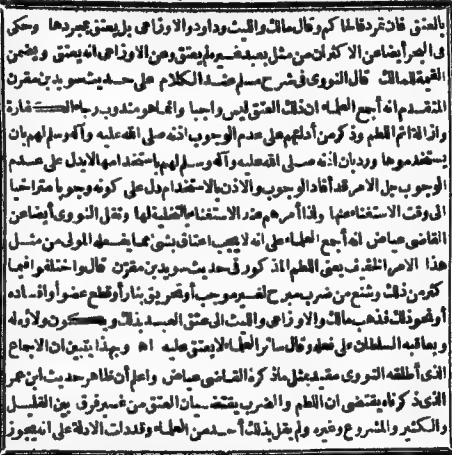 بالعتق فان تمرد فالحاكم وقال مالك والليث وداود والاوزاعي بل يعتق بمجردها وحكى
في البحر أيضا عن الاكثر ان من مثل بعبد غيره لم يعتق وعن الاوزاعي انه يعتق ويضمن
القيمة للمالك قال النووي في شرح مسلم عند الكلام على حديث سويد بن مقرن
المتقدم انه أجمع العلماء ان ذلك العتق ليس واجبا وانما هو مندوب رجاء الكفارة
وازالة اثم اللطم وذكر من أدلتهم على عدم الوجوب اذنه صلى الله عليه وآله وسلم لهم بان
يستخدموها ورد بان اذنه صلى الله عليه وآله وسلم لهم باستخدامها لا يدل على عدم
الوجوب بل الامر قد أفاد الوجوب والاذن بالاستخدام دل على كونه وجوبا متراخيا
الى وقت الاستغناء عنها ولذا أمرهم عند الاستغناء بالتخلية لها ونقل النووي أيضا عن
القاضي عياض انه أجمع العلماء على انه لا يجب اعتاق بشئ مما يفعله المولى من مثل
هذا الامر الخفيف يعني اللطم المذكور في حديث سويد بن مقرن قال واختلفوا فيما
كثر من ذلك وشنع من ضرب مبرح لغير موجب أو تحريق بنار أو قطع عضو أو افساده
أو نحو ذلك فذهب مالك والاوزاعي والليث الى عتق العبد بذلك ويكون ولاؤه له
ويعاقبه السلطان على فعله وقال سائر العلماء لا يعتق عليه اه وبهذا يتبين ان الاجماع
الذي أطلقه النووي مقيد بمثل ما ذكره القاضي عياض واعلم أن ظاهر حديث ابن عمر
الذي ذكرناه يقتضي ان اللطم والضرب يقتضيان العتق من غير فرق بين القليل
والكثير والمشروع وغيره ولم يقل بذلك أحد من العلماء وقد دلت الادلة على انه يجوز